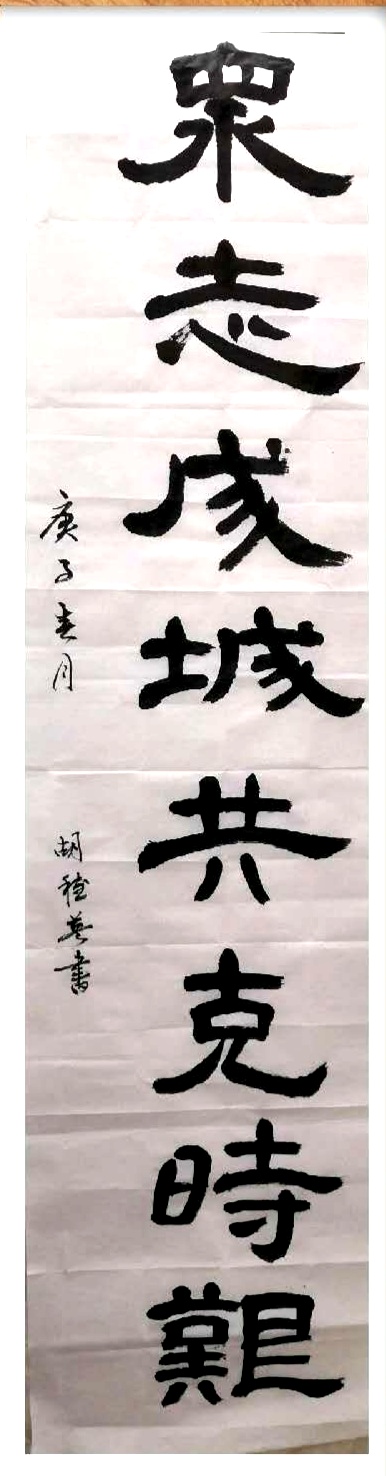 眾志成城共克時艱
庚子春月
胡稳英書